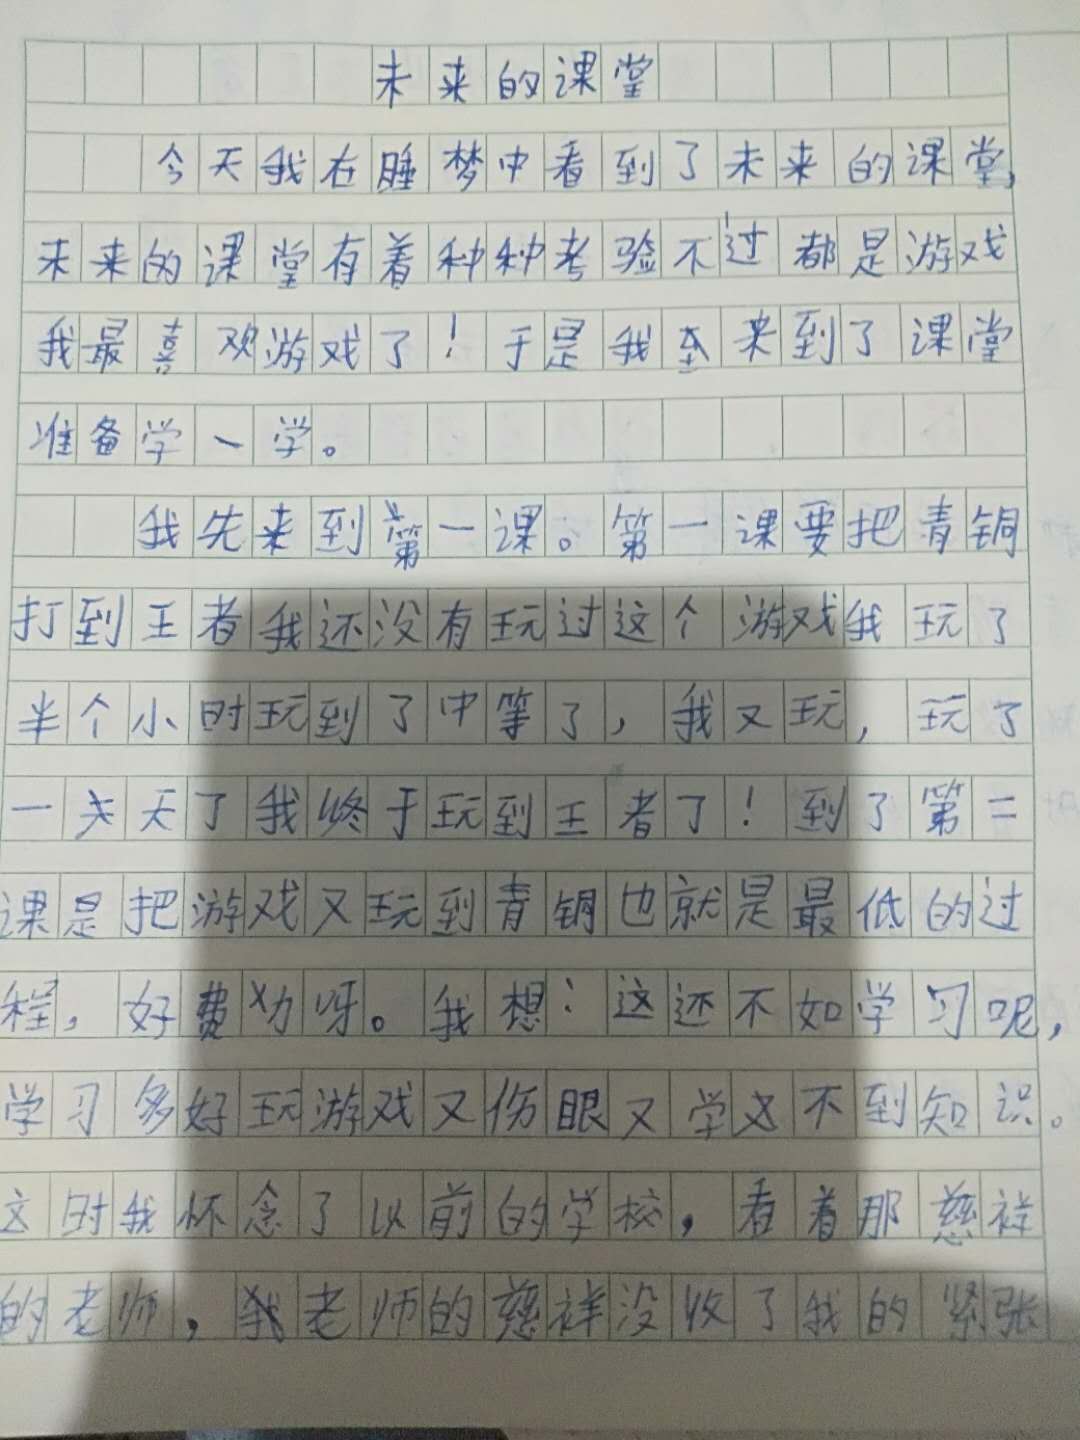 未来的课堂
今天我在睡梦中看到了未来的课堂,
未来的课堂有着种种考验不过都是游戏
我最喜欢游戏了！于是我来到了课堂
准备学一学。
我先来到第一课。第一课要把青铜
打到王者我还没有玩过这个游戏我玩了
半个小时玩到了中等了，我又玩，玩了
一天了我终于玩到王者了！到了第二
课是把游戏又玩到青铜也就是最低的过
程，好费劲呀。我想：这还不如学习呢，
学习多好玩游戏又伤眼又学不到知识。
这时我怀念了以前的学校，看着那慈祥
的老师，老师的慈祥没收了我的紧张